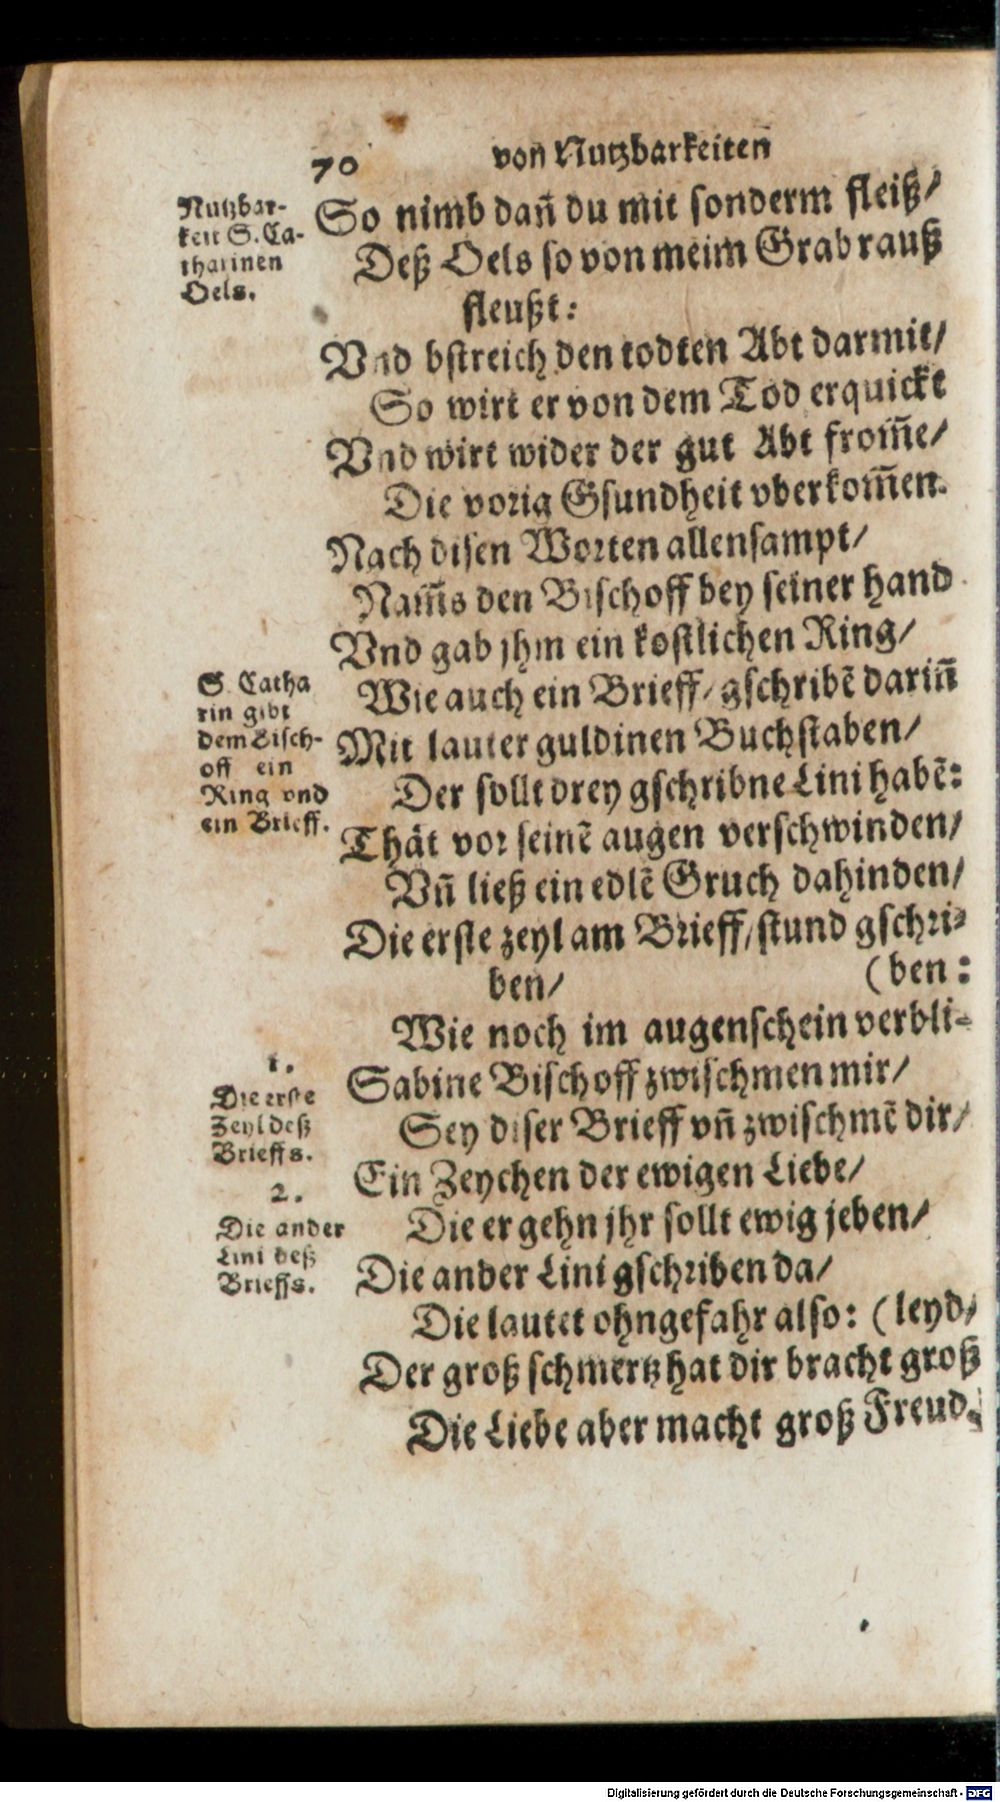 70 von Nutzbarkeiten
Nutzbar-
keit S. Ca-
tharinen
Oels.
So nimb dañ du mit sonderm fleiß/
Deß Oels so von meim Grab rauß
fleußt:
Vnd bstreich den todten Abt darmit/
So wirt er von dem Tod erquickt
Vnd wirt wider der gut Abt from̃e/
Die vorig Gsundheit vberkom̃en.
Nach disen Worten allensampt/
Nam̃s den Bischoff bey seiner hand
Vnd gab jhm ein kostlichen Ring/
S. Catha
rin gibt
dem Bisch-
off ein
Ring vnd
ein Brieff.
Wie auch ein Brieff/ gschribẽ dariñ
Mit lauter guldinen Buchstaben/
Der sollt drey gschribne Lini habẽ:
Thät vor seinẽ augen verschwinden/
Vñ ließ ein edlẽ Gruch dahinden/
Die erste zeyl am Brieff/ stund gschri-
ben/ (ben:
Wie noch im augenschein verbli-
1.
Die erste
Zeyl deß
Brieffs.
Sabine Bischoff zwischmen mir/
Sey diser Brieff vñ zwischmẽ dir/
Ein Zeychen der ewigen Liebe/
2.
Die ander
Lini deß
Brieffs.
Die er gehn jhr sollt ewig jeben/
Die ander Lini gschriben da/
Die lautet ohngefahr also: (leyd/
Der groß schmertz hat dir bracht groß
Die Liebe aber macht groß Freud.
Digitalisierung gefördert durch die Deutsche Forschungsgemeinschaft - DFG